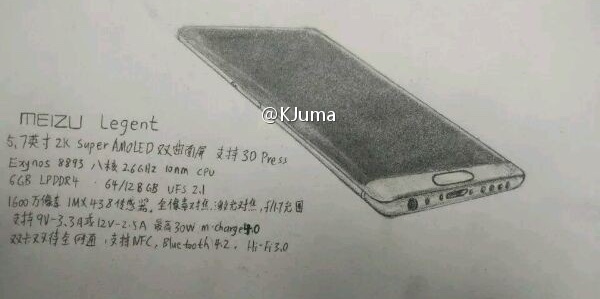 @KJuma
MEIZU Legent
5.7英寸 2K Super AMOLED 双曲面屏 支持3D Press
Exynos 8893 八核 2.6GHz 10nm CPU
6GB LPDDR4 · 64/128GB UFS 2.1
1600万像素 IMX438传感器, 全像素对焦, 激光对焦, f/1.7光圈
支持9V-3.3A或12V-2.5A 最高30W m·charge4.0
双卡双待全网通, 支持NFC, Bluetooth 4.2, Hi-Fi 3.0